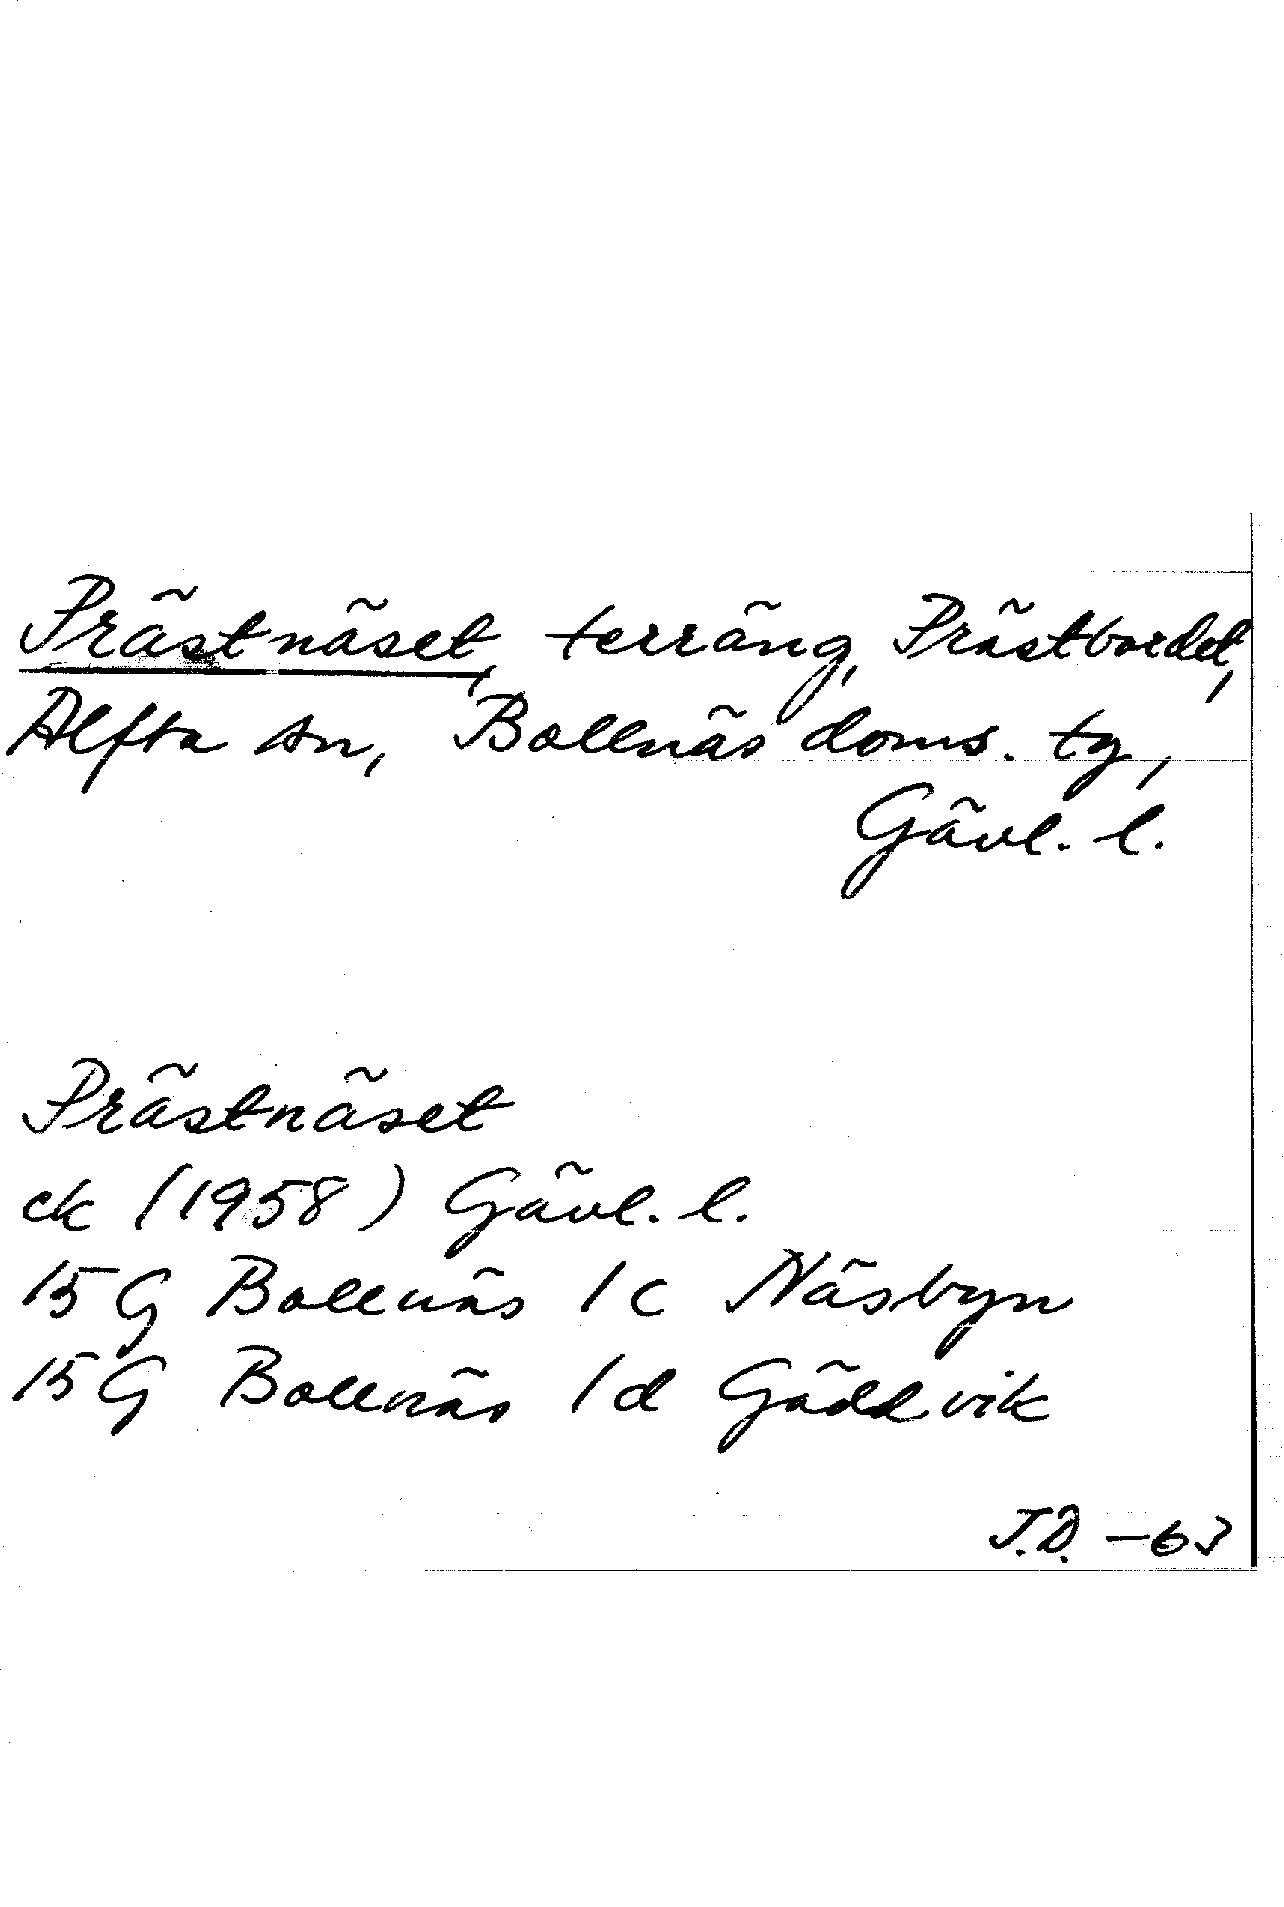 Prästnäset, terräng, Prästbordet,
Alfta sn, Bollnäs doms. tg,
Gävl. l.
Prästnäset
ek (1958) Gävl. l.
15 G Bollnäs 1 c Näsbyn
15 G Bollnäs 1 d Gäddvik
J.D. -63